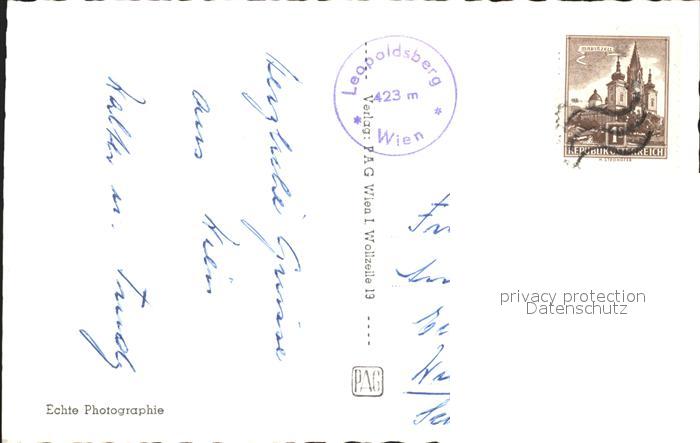 Herzliche Grüsse
aus Wien
Walter u. Trudy
Leopoldsberg
423 m
* Wien *
Verlag: PAG Wien I. Wollzeile 19
PAG
Echte Photographie
MARIAZELL
1
REPUBLIK ÖSTERREICH
privacy protection
Datenschutz